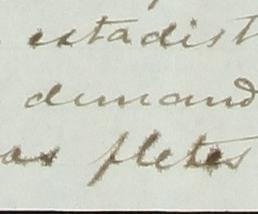 estadist
demand
as fletes